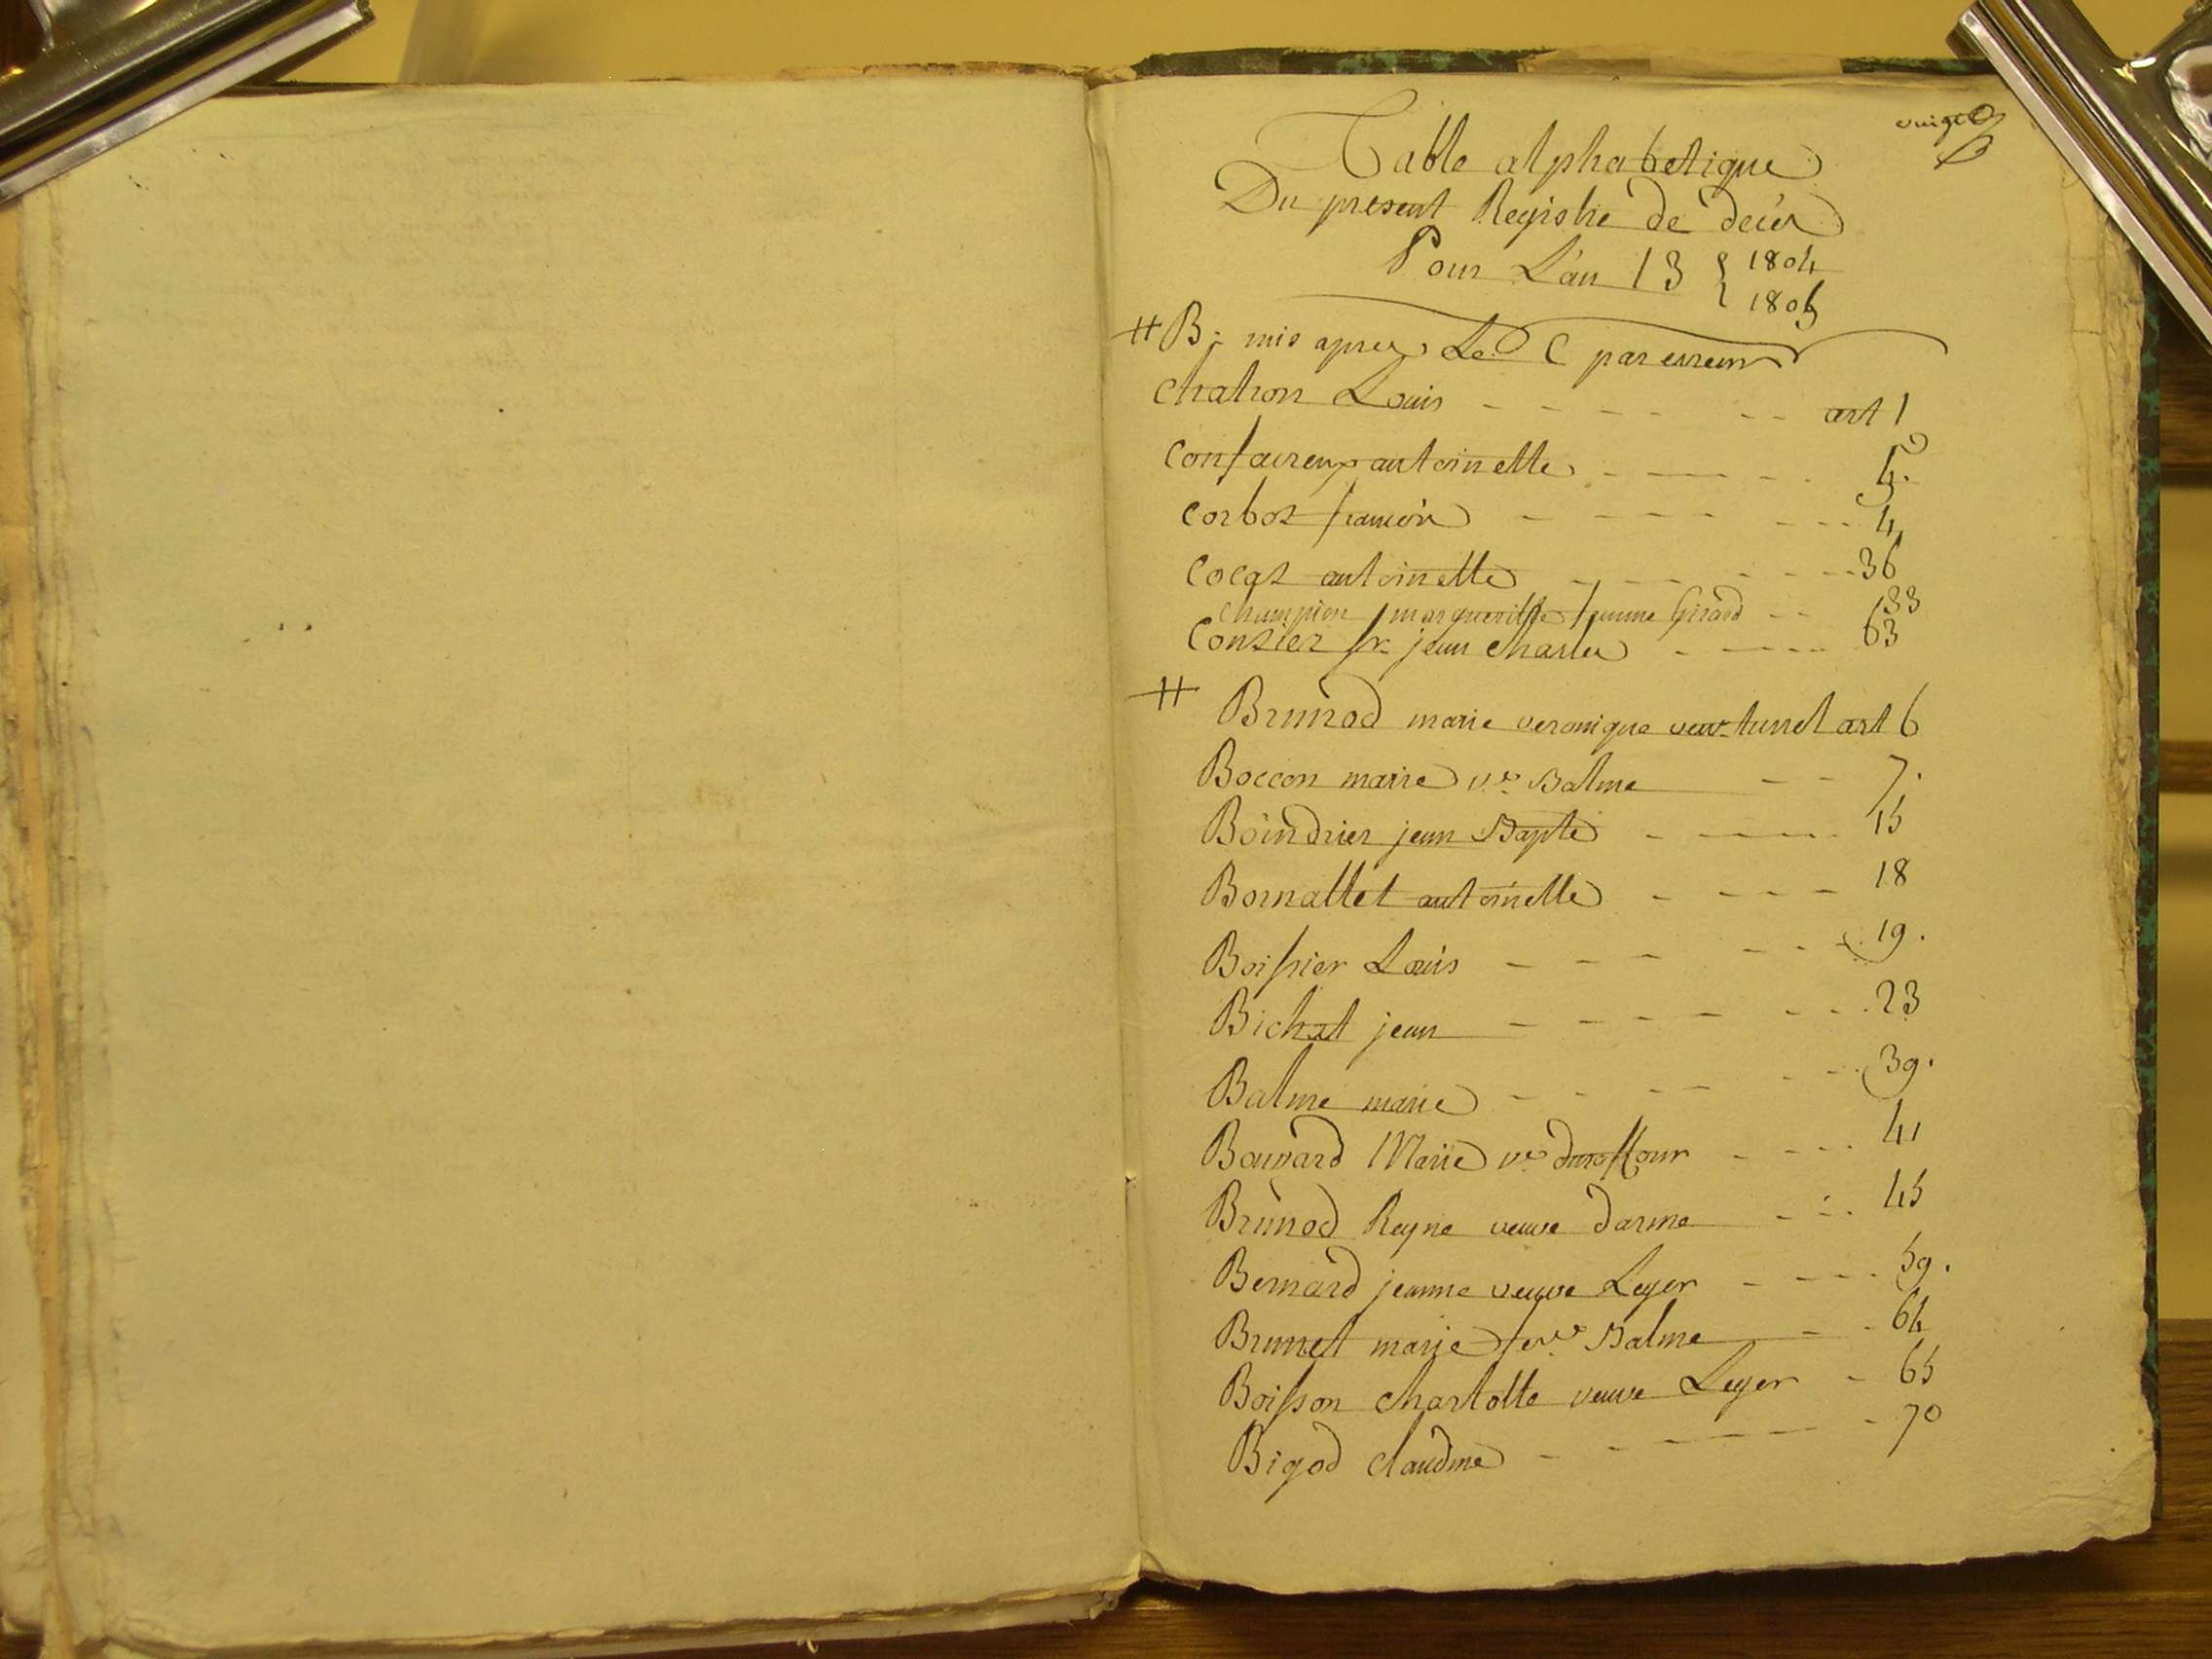 vingt
Table alphabetique
Du present Registre de décès
Pour L'an 13 { 1804
1805
# B; mis apres Le C par erreur
Chatron Louis - - - - - - art 1
Confavreux antoinette - - - - 5.
Corbot françois - - - - - - 4
Cocat antoinette - - - - - 36
Champion marguerithe femme Girard - - 33
Consier fx jean charles - - - - 63
# Brunod marie veronique veuv tunel art 6
Boccon marie ve Balme - - 7.
Boindrier jean Bapte - - - - 15
Bornallet antoinette - - - - 18
Boissier Louis - - - - - - 19.
Bichat jean - - - - - - 23
Balme marie - - - - - - 39.
Bouvard Marie ve duroflour - - - - 41
Brunod Reyne veuve darme - - - 45
Bernard jeanne veuve Leger - - - - 59.
Brunet marie fe ve Balme - - 64
Boisson charlotte veuve Leger - 65
Bigod claudine - - - - - - 70